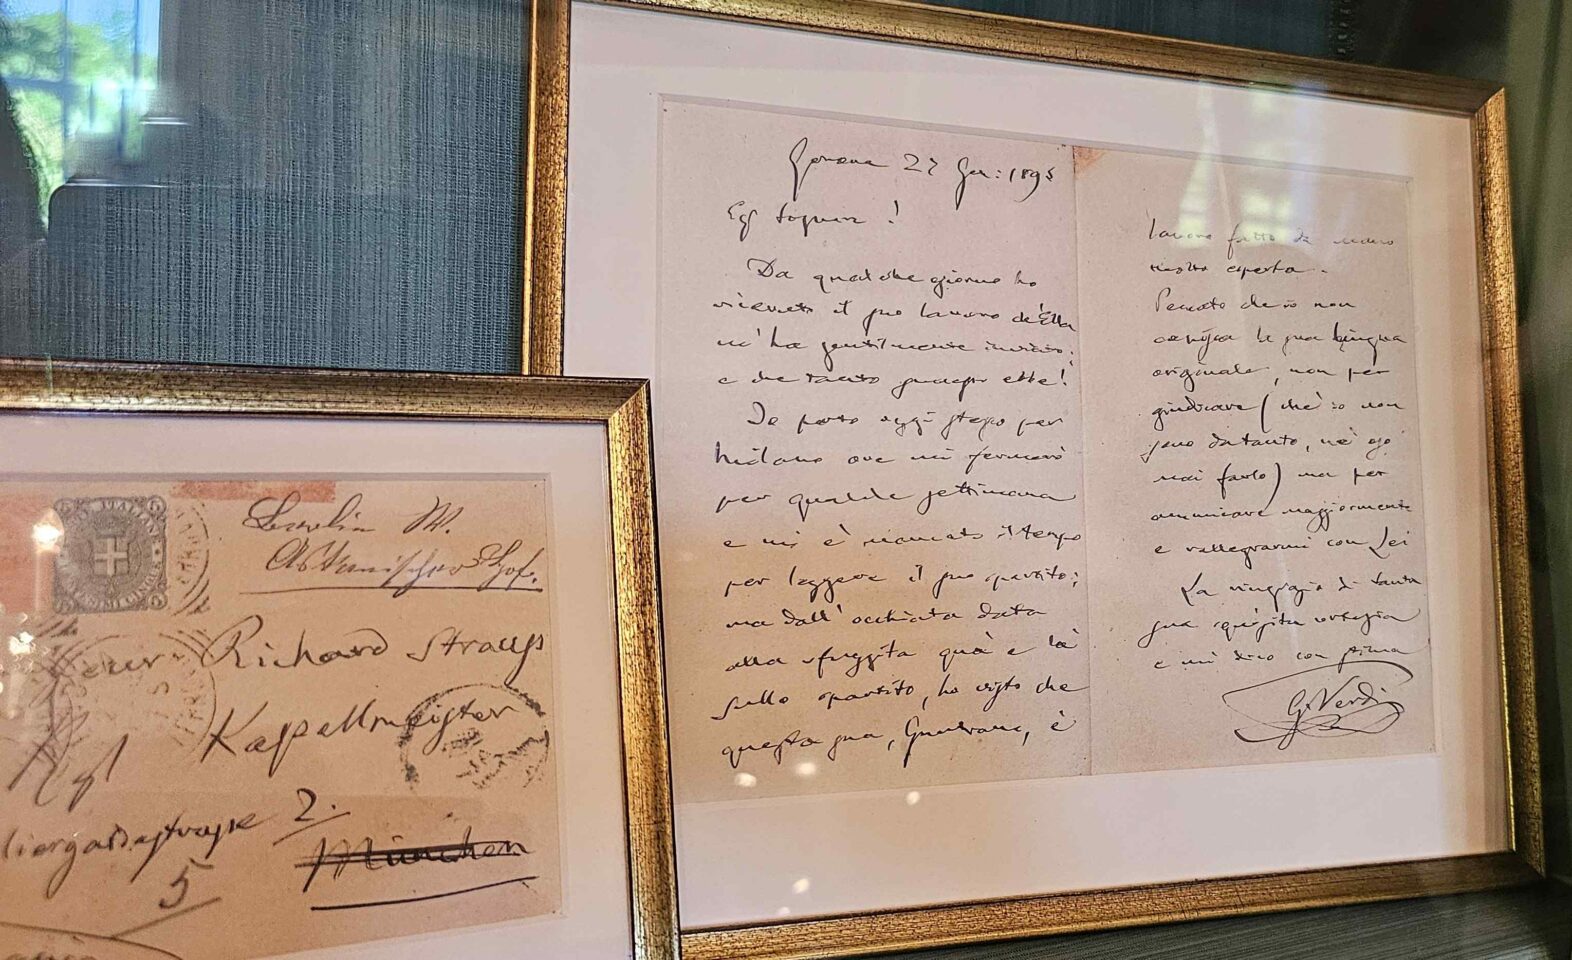 Genova 27 Gen: 1895
Eg Signore!
Da qualche giorno ho
ricevuto il suo lavoro ch'Ella
m'ha gentilmente inviato;
e che tanto successo ebbe!
Io parto oggi stesso per
Milano ove mi fermerò
per qualche settimana
e mi è mancato il tempo
per leggere il suo spartito;
ma dall'occhiata data
alla sfuggita quà e là
sullo spartito, ho visto che
questo suo, Guntram, è
lavoro fatto da mano
molto esperta.
Peccato ch'io non
conosca la sua lingua
originale, non per
giudicare (chè io non
sono da tanto, nè oso
mai farlo) ma per
ammirare maggiormente
e rallegrarmi con Lei
La ringrazio di tanta
sua squisita cortesia
e mi dico con stima
G. Verdi
Berlin W.
Askanischer Hof.
Herrn Richard Strauss
Kapellmeister
2.
München
5